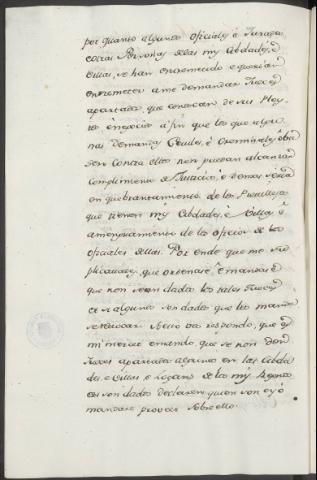 por quanto algunos oficiales, é Jurados
é otras Personas delas mis Cibdades, é
Villas, se han entremetido e quieren
entremeter a me demandar Jueces
apartados, que conoscan de sus Pley
tos é negocios a fin que los que algu
nas demandas Ceviles, é criminales obie
sen contra ellos non puedan alcanzar
complimiento de Justicia, é
en quebrantamiento de los Previllejos
que tienen mis Cibdades, é Villas, é
amenguamiento de los oficios de los
oficiales dellas. Por ende que me su
plicavades, que ordenase, é mandase
que non sean dados los tales Jueces
ce si algunos son dados que los mande
revocar. A esto vos respondo, que es
mi merced e mando, que se non den
Jueces apartados algunos en las Cibda
des e Villas e Logares de los mis Regnos
es son dados declaren quien son e yo
mandaré proveer sobre ello.